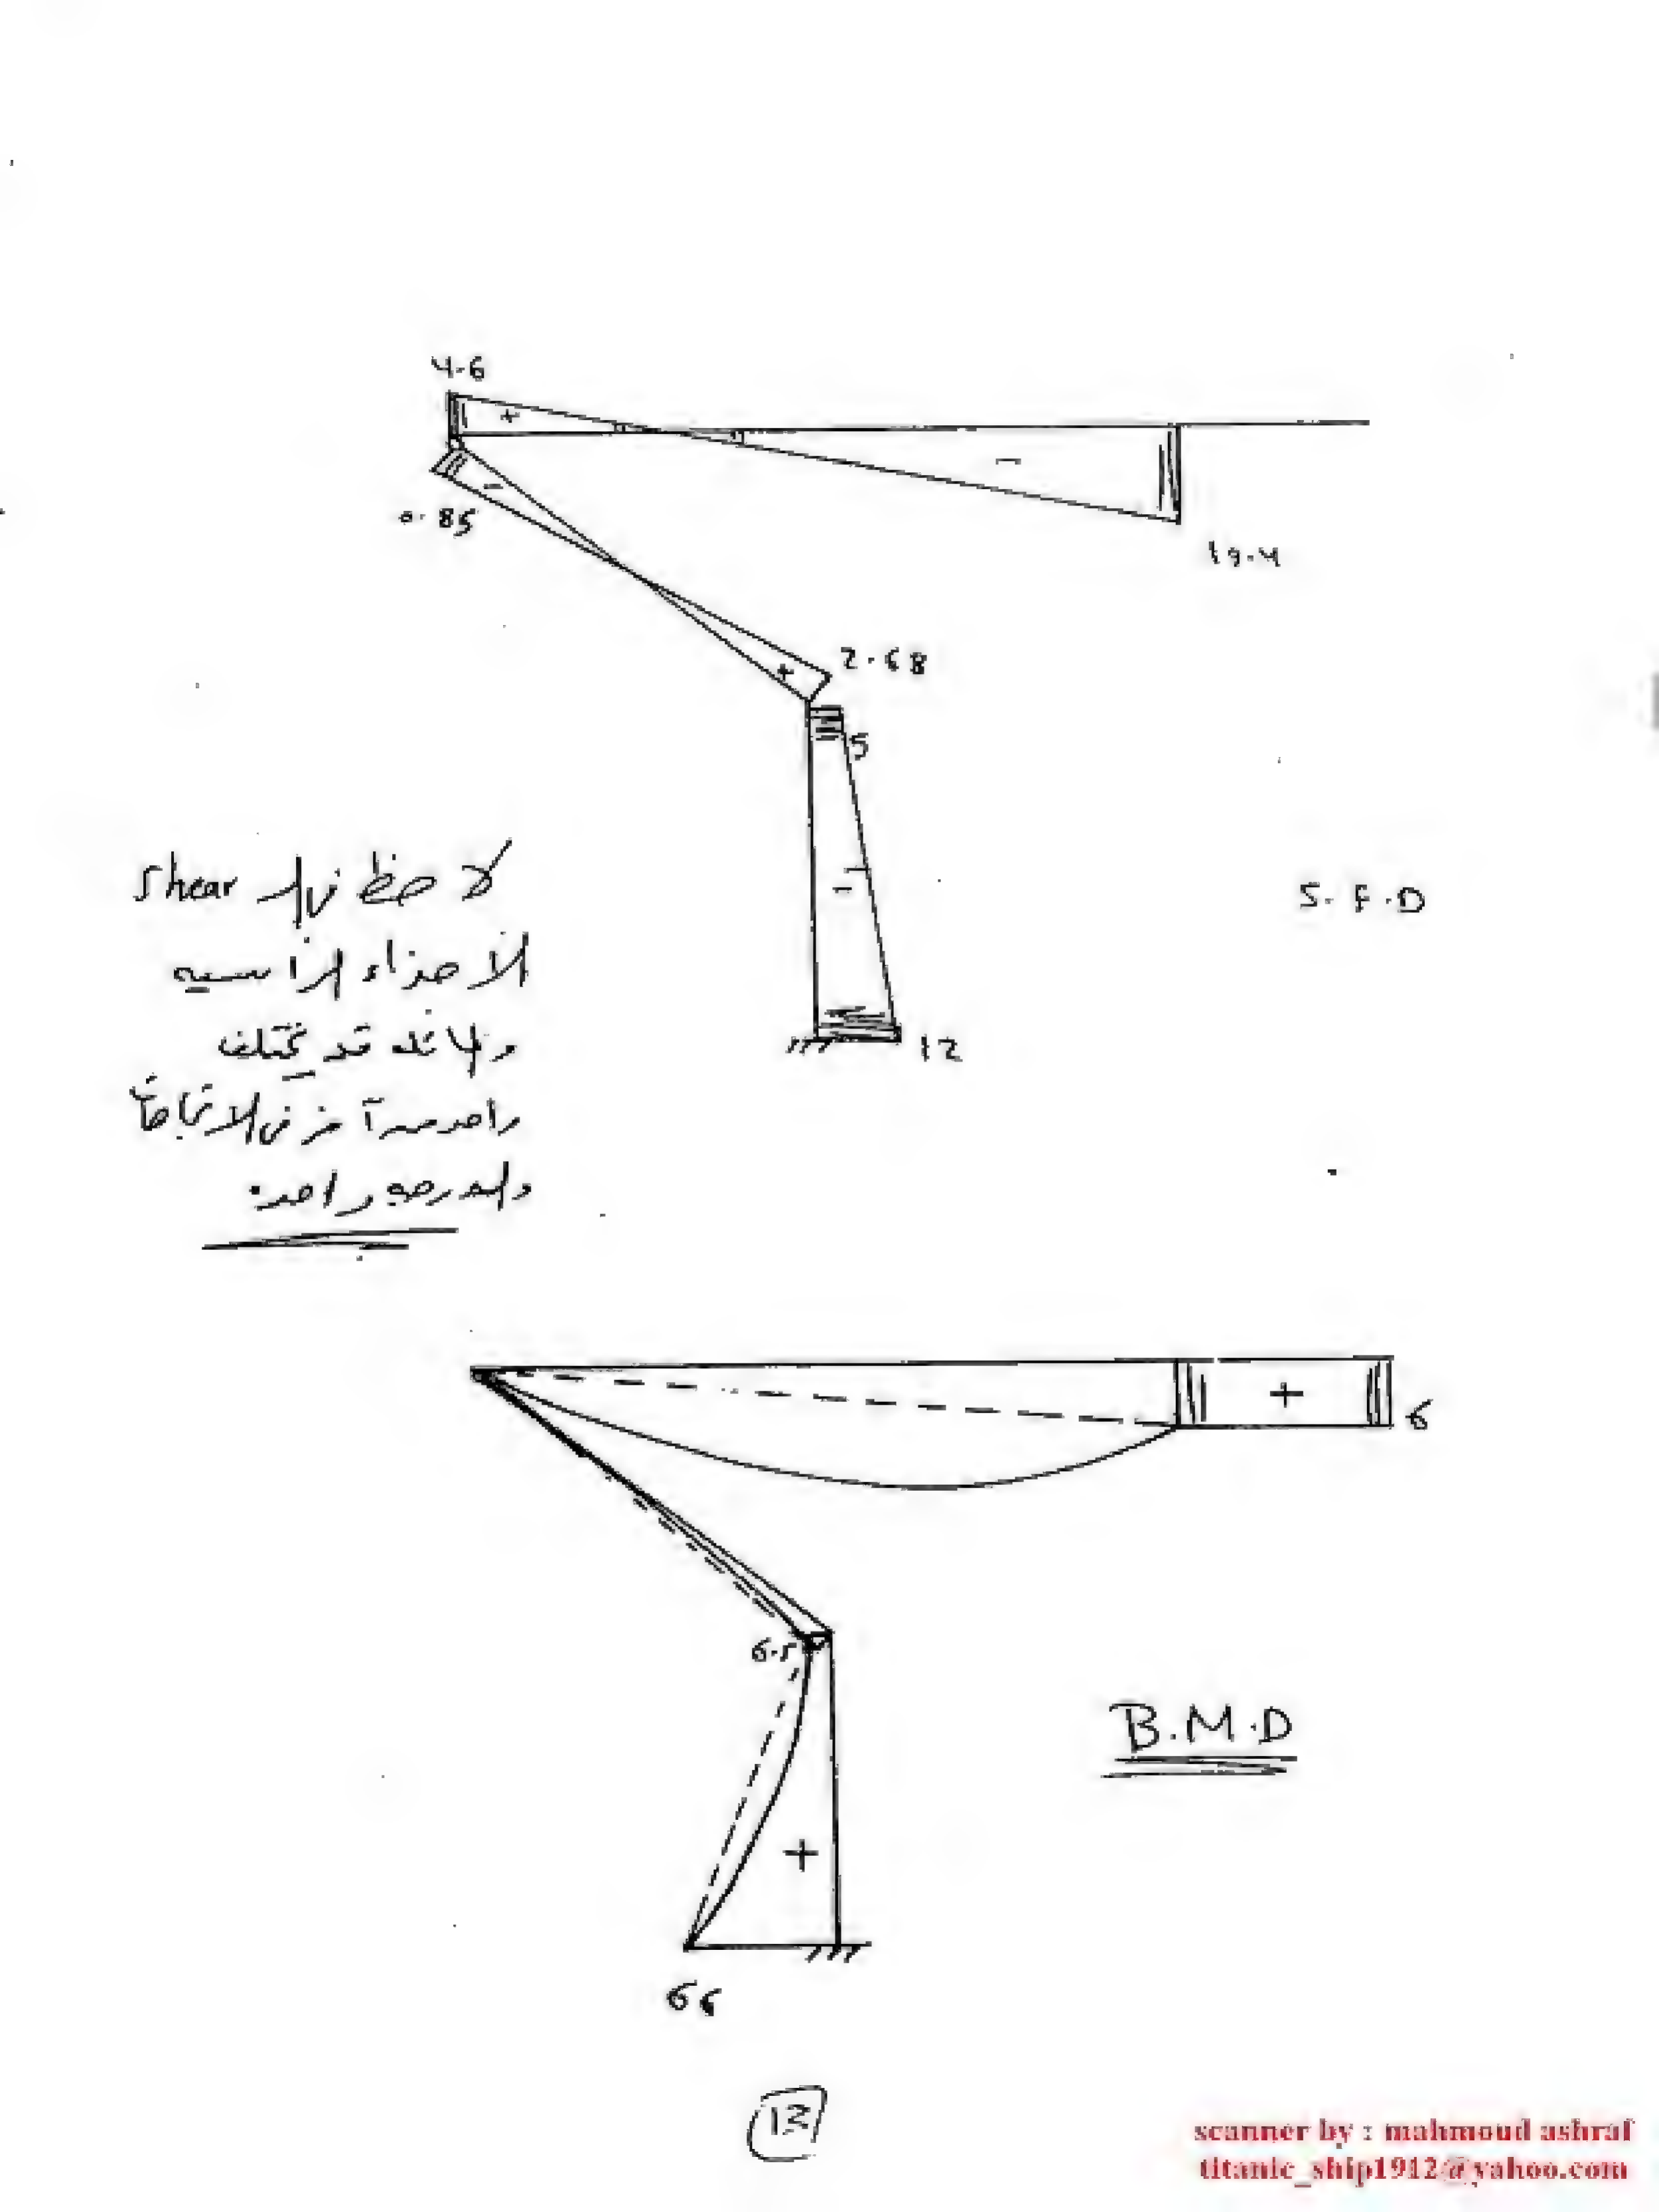 4.6
+
-
-
0.85
19.4
2.68
+
5
-
S.F.D
12
لاحظ فى ال shear
الاجزاء الرأسيه
ولانه قد يختلف
واحد عن آخر فى الاتجاهات
والدرجه واحده
+
6
6.5
B.M.D
+
66
12
scanner by : mahmoud ashraf
titanic_ship1912@yahoo.com